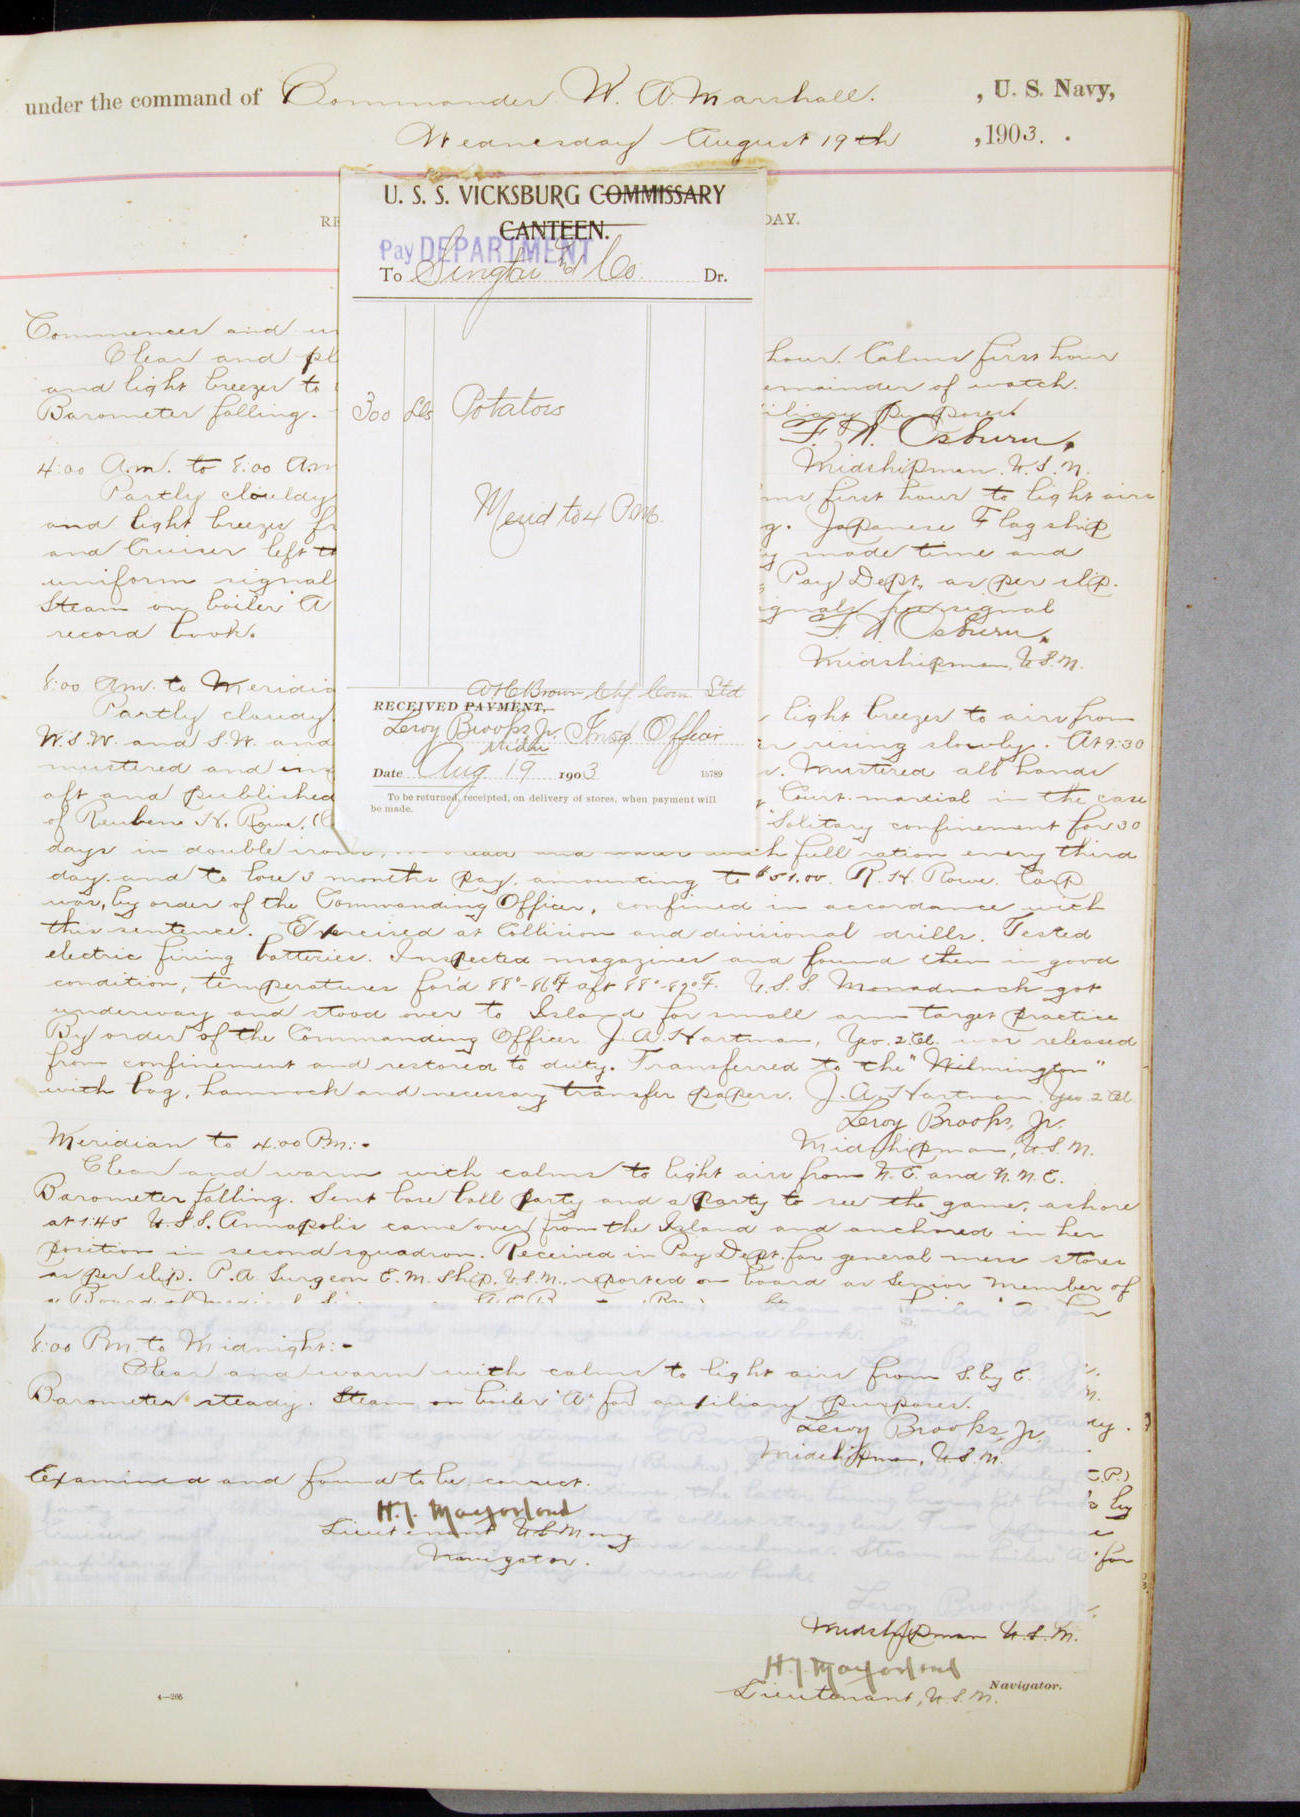 under the command of Commander W. A. Marshall. , U. S. Navy,
Wednesday August 19th , 1903.
U. S. S. VICKSBURG COMMISSARY
CANTEEN.
Pay DEPARTMENT
To Singtai and Co. Dr.
300 Lbs Potatoes
Merid to 4 P.M.
Chf. Com. Std
RECEIVED PAYMENT,
Leroy Brooks Jr. Insp Officer
Midn
Date Aug 19 1903 15789
To be returned, receipted, on delivery of stores, when payment will
be made.
RE
DAY.
Commences and un
Clear and pl hour. Calms first hour
and light breezes to emainder of watch.
Barometer falling. iliary purposes.
F. N. Osburn,
Midshipman. U.S.N.
4:00 A.m. to 8:00 A.m
Partly cloudy ms first hour to light airs
and light breezes fr g. Japanese Flagship
and Cruiser left th y made time and
uniform signal Pay Dept, as per slip.
Steam on boiler "A ignals see signal
record book. F. N. Osburn,
Midshipman, U.S.N.
8:00 Am. to Meridia
Partly cloudy light breezes to airs from
W.S.W. and S.W. and er rising slowly. At 9:30
mustered and ins s. Mustered all hands
aft and published y Court-martial in the case
of Reuben H. Rowe, (C "Solitary confinement for 30
days in double irons, on bread and water with full ration every third
day and to lose 3 months pay. amounting to $51.00. R. H. Rowe. Carp
was, by order of the Commanding Officer, confined in accordance with
this sentence. Exercised at Collision and divisional drills. Tested
electric firing batteries. Inspected magazines and found them in good
condition, temperatures for'd 88°-86°F aft 88°-89°F. U.S.S. Monadnock got
underway and stood over to Island for small arm target practice
By order of the Commanding Officer J. A. Hartman, Yeo. 2 Cl. was released
from confinement and restored to duty. Transferred to the "Wilmington"
with bag, hammock and necessary transfer papers. J. A. Hartman. Yeo 2 Cl.
Leroy Brooks, Jr.
Midshipman, U.S.N.
Meridian to 4:00 Pm:-
Clear and warm with calms to light airs from N.E. and N.N.E.
Barometer falling. Sent base ball party and a party to see the game, ashore
at 1:45 U.S.S. Annapolis came over from the Island and anchored in her
position in second squadron. Received in Pay Dept. for general mess stores
as per slip. P.A. Surgeon E. M. Ship, U.S.N., reported on board as Senior Member of
8:00 Pm. to Midnight:-
Clear and warm with calms to light airs from S. by E.
Barometer steady. Steam on boiler "A" for auxiliary purposes.
Leroy Brooks, Jr.
Midshipman, U.S.N.
Examined and found to be correct.
Lieutenant U.S. Navy
Navigator.
Leroy Brooks Jr
Midshipman U.S.N.
Lieutenant, U.S.N. Navigator.
4—266